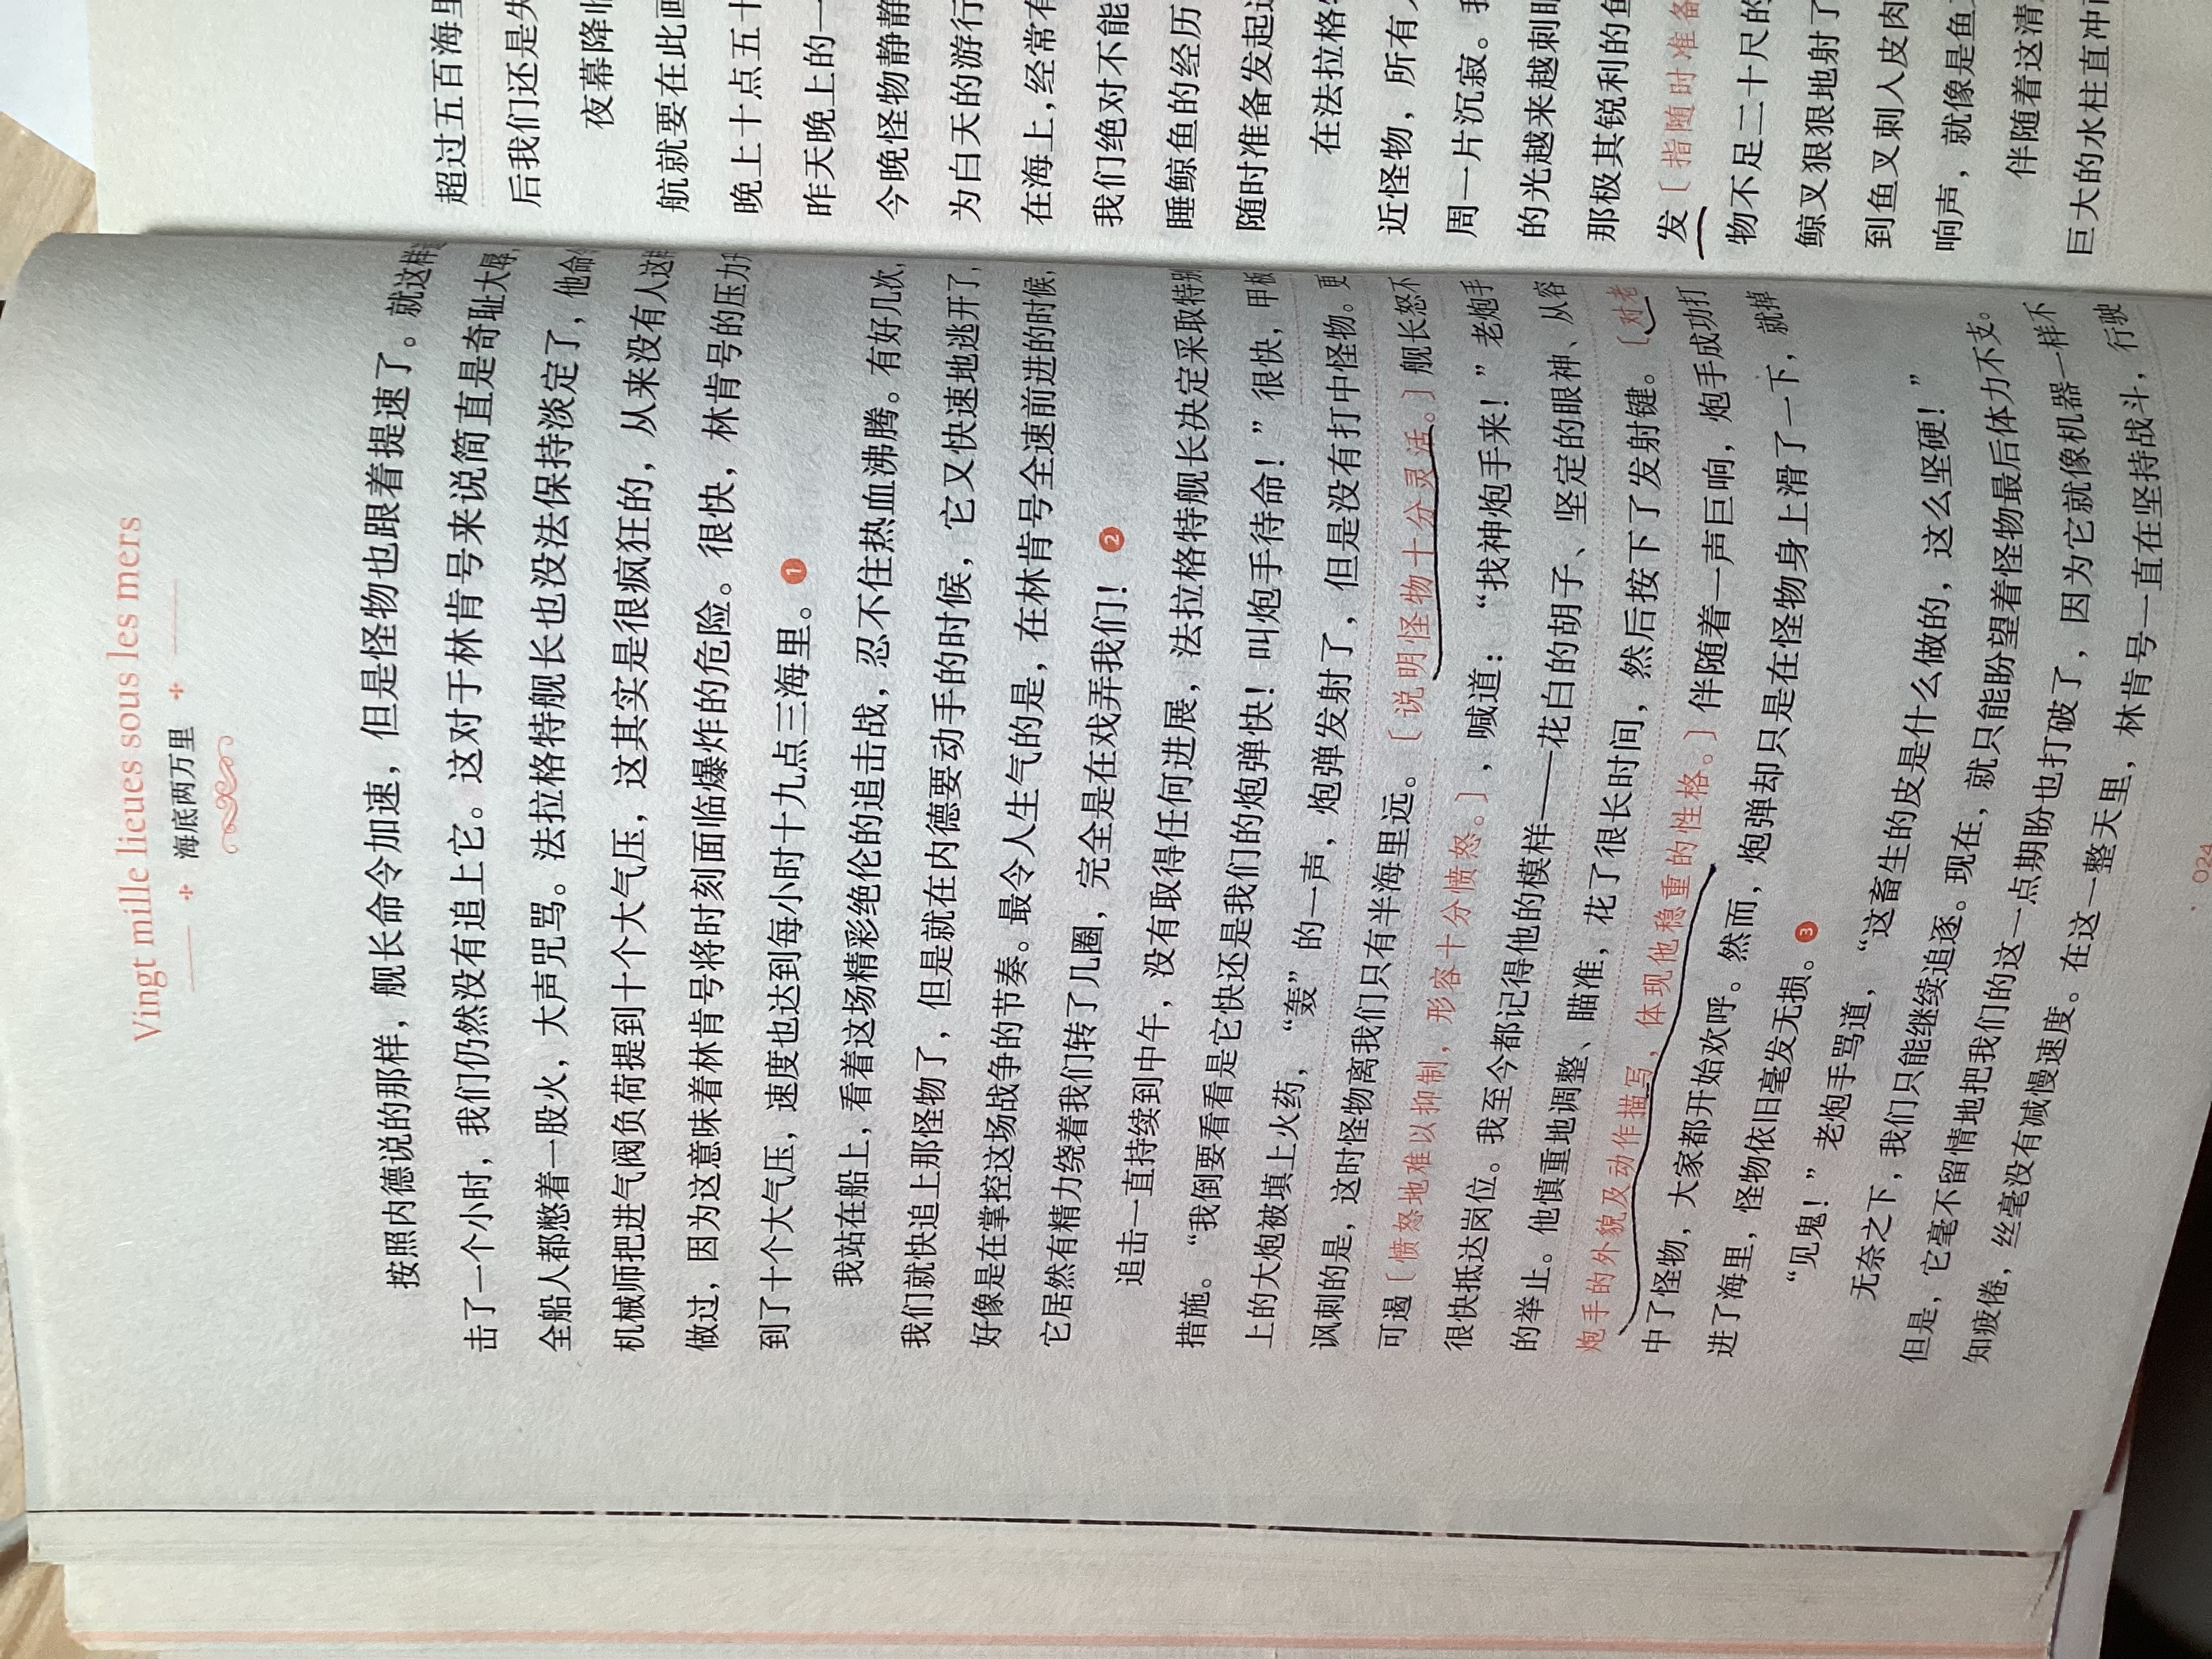 Vingt mille lieues sous les mers
海底两万里
按照内德说的那样，舰长命令加速，但是怪物也跟着提速了。就这样
击了一个小时，我们仍然没有追上它。这对于林肯号来说简直是奇耻大辱，
全船人都憋着一股火，大声咒骂。法拉格特舰长也没法保持淡定了，他命
机械师把进气阀负荷提到十个大气压，这其实是很疯狂的，从来没有人这样
做过，因为这意味着林肯号将时刻面临爆炸的危险。很快，林肯号的压力
到了十个大气压，速度也达到每小时十九点三海里。❶
我站在船上，看着这场精彩绝伦的追击战，忍不住热血沸腾。有好几次，
我们就快追上那怪物了，但是就在内德要动手的时候，它又快速地逃开了，
好像是在掌控这场战争的节奏。最令人生气的是，在林肯号全速前进的时候，
它居然有精力绕着我们转了几圈，完全是在戏弄我们！❷
追击一直持续到中午，没有取得任何进展，法拉格特舰长决定采取特别
措施。“我倒要看看是它快还是我们的炮弹快！叫炮手待命！”很快，甲板
上的大炮被填上火药，“轰”的一声，炮弹发射了，但是没有打中怪物。更
讽刺的是，这时怪物离我们只有半海里远。［说明怪物十分灵活。］舰长怒不
可遏［愤怒地难以抑制，形容十分愤怒。］，喊道：“找神炮手来！”老炮手
很快抵达岗位。我至今都记得他的模样——花白的胡子、坚定的眼神、从容
的举止。他慎重地调整、瞄准，花了很长时间，然后按下了发射键。［对老
炮手的外貌及动作描写，体现他稳重的性格。］伴随着一声巨响，炮手成功打
中了怪物，大家都开始欢呼。然而，炮弹却只是在怪物身上滑了一下，就掉
进了海里，怪物依旧毫发无损。❸
“见鬼！”老炮手骂道，“这畜生的皮是什么做的，这么坚硬！”
无奈之下，我们只能继续追逐。现在，就只能盼望着怪物最后体力不支。
但是，它毫不留情地把我们的这一点期盼也打破了，因为它就像机器一样不
知疲倦，丝毫没有减慢速度。在这一整天里，林肯号一直在坚持战斗，行驶
024
超过五百海里
后我们还是失
夜幕降临
航就要在此画
晚上十点五十
昨天晚上的一
今晚怪物静静
为白天的游行
在海上，经常有
我们绝对不能
睡鲸鱼的经历
随时准备发起
在法拉格
近怪物，所有
周一片沉寂。我
的光越来越刺眼
那极其锐利的鱼
发［指随时准备
物不足二十尺的
鲸叉狠狠地射了
到鱼叉刺入皮肉
响声，就像是鱼
伴随着这清
巨大的水柱直冲